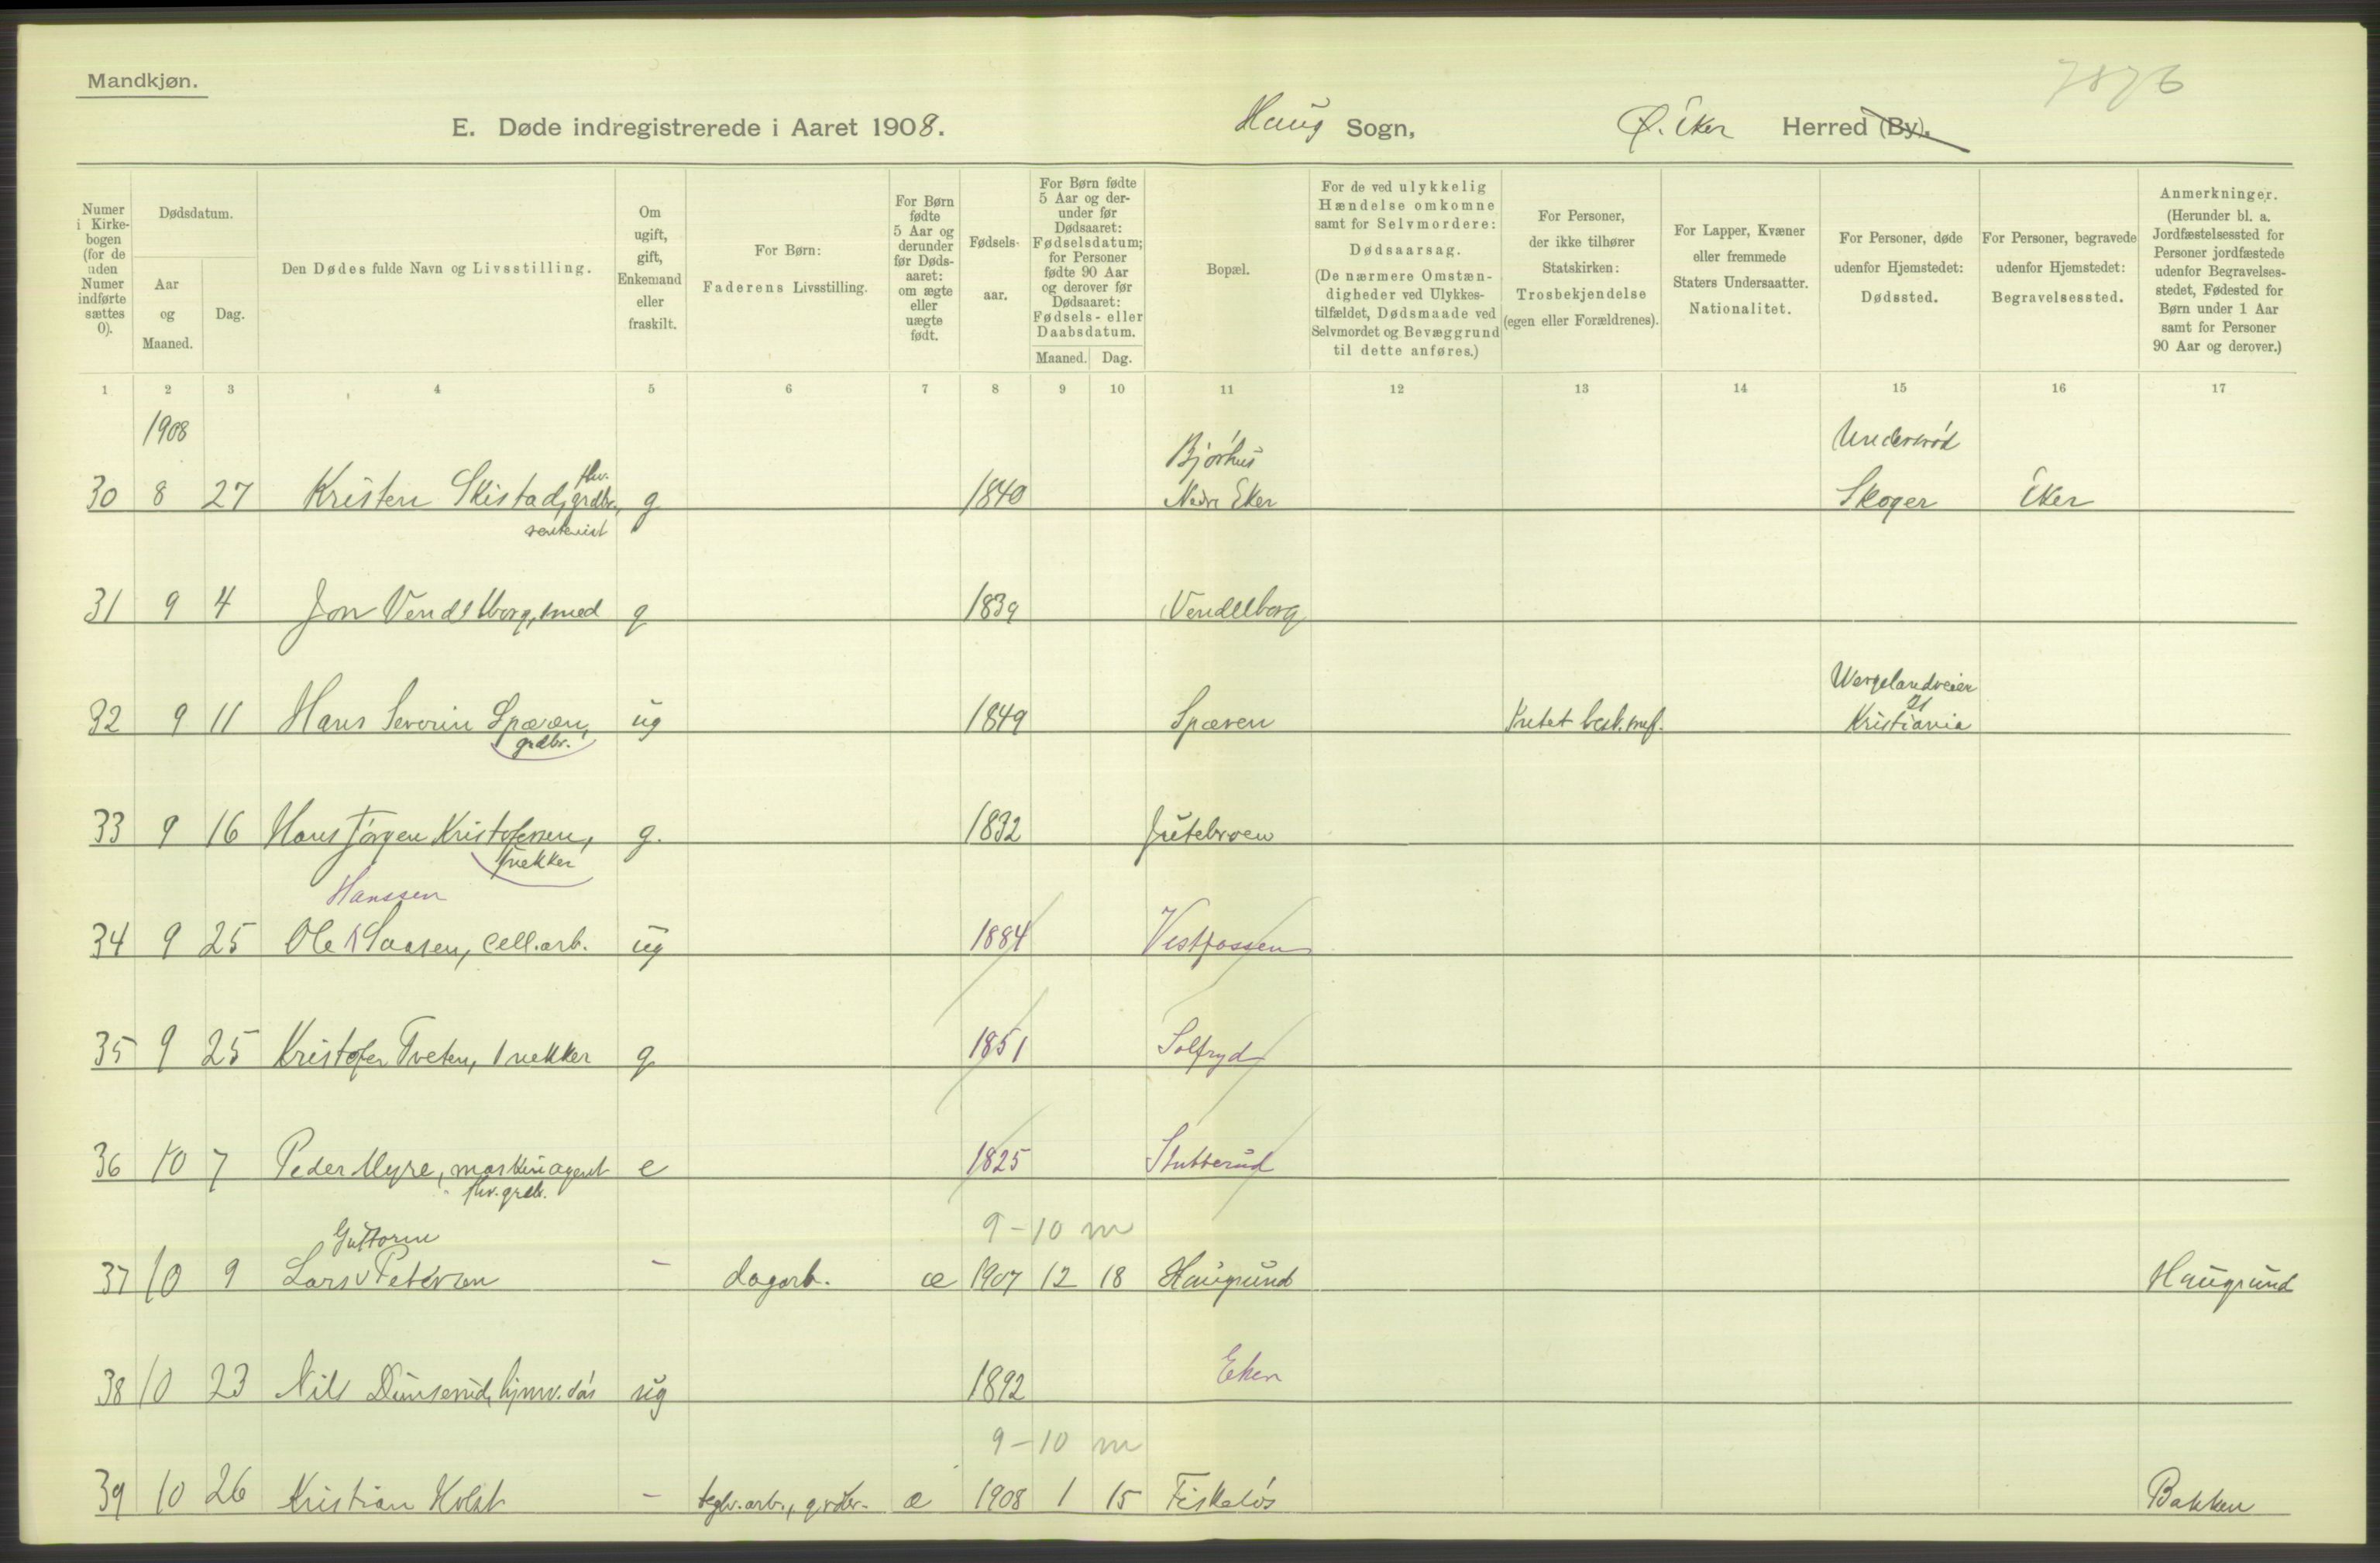 Mandkjøn.
7876
E. Døde indregistrerede i Aaret 1908. Haug Sogn, Ø. Eker Herred (By).
Numer i Kirkebogen (for de uden Numer indførte sættes 0).
Dødsdatum.
Aar og Maaned.
Dag.
Den Dødes fulde Navn og Livsstilling.
Om ugift, gift, Enkemand eller fraskilt.
For Børn: Faderens Livsstilling.
For Børn fødte 5 Aar og derunder før Dødsaaret: om ægte eller uægte født.
Fødselsaar.
For Børn fødte 5 Aar og derunder før Dødsaaret: Fødselsdatum; for Personer fødte 90 Aar og derover før Dødsaaret: Fødsels- eller Daabsdatum.
Maaned. Dag.
Bopæl.
For de ved ulykkelig Hændelse omkomne samt for Selvmordere: Dødsaarsag. (De nærmere Omstændigheder ved Ulykkestilfældet, Dødsmaade ved Selvmordet og Bevæggrund til dette anføres.)
For Personer, der ikke tilhører Statskirken: Trosbekjendelse (egen eller Forældrenes).
For Lapper, Kvæner eller fremmede Staters Undersaatter. Nationalitet.
For Personer, døde udenfor Hjemstedet: Dødssted.
For Personer, begravede udenfor Hjemstedet: Begravelsessted.
Anmerkninger. (Herunder bl. a. Jordfæstelsessted for Personer jordfæstede udenfor Begravelsesstedet, Fødested for Børn under 1 Aar samt for Personer 90 Aar og derover.)
1 2 3 4 5 6 7 8 9 10 11 12 13 14 15 16 17
1908
Bjørhus
30 8 27 Kristen Skistad, fhv. grdbr., g 1840 Nedre Eker Skoger Eker
31 9 4 Jon Vendelborg, smed g 1839 Vendelborg
Wergelandveien
21
32 9 11 Hans Severin Spæren, ug 1849 Spæren Kristiania
grdbr.
33 9 16 Hans Jørgen Kristofersen, g. 1832 Jutebroen
snekker
Hanssen
34 9 25 Ole Saasen, cell.arb. ug 1884 Vestfossen
35 9 25 Kristofer Tveten, snekker g 1851 Solfryd
36 10 7 Peder Myre, maskinagent e 1825 Stutterud
fhv. grdb.
Guttorm 9-10 m
37 10 9 Lars Petersen - dagarb. æ 1907 12 18 Haugrund Haugrund
Eker
38 10 23 Nils Dunserud, hjmv. søs ug 1892
9-10 m
39 10 26 Kristian Holst - teglv.arb., grdbr. æ 1908 1 15 Fiskeløs Bakken